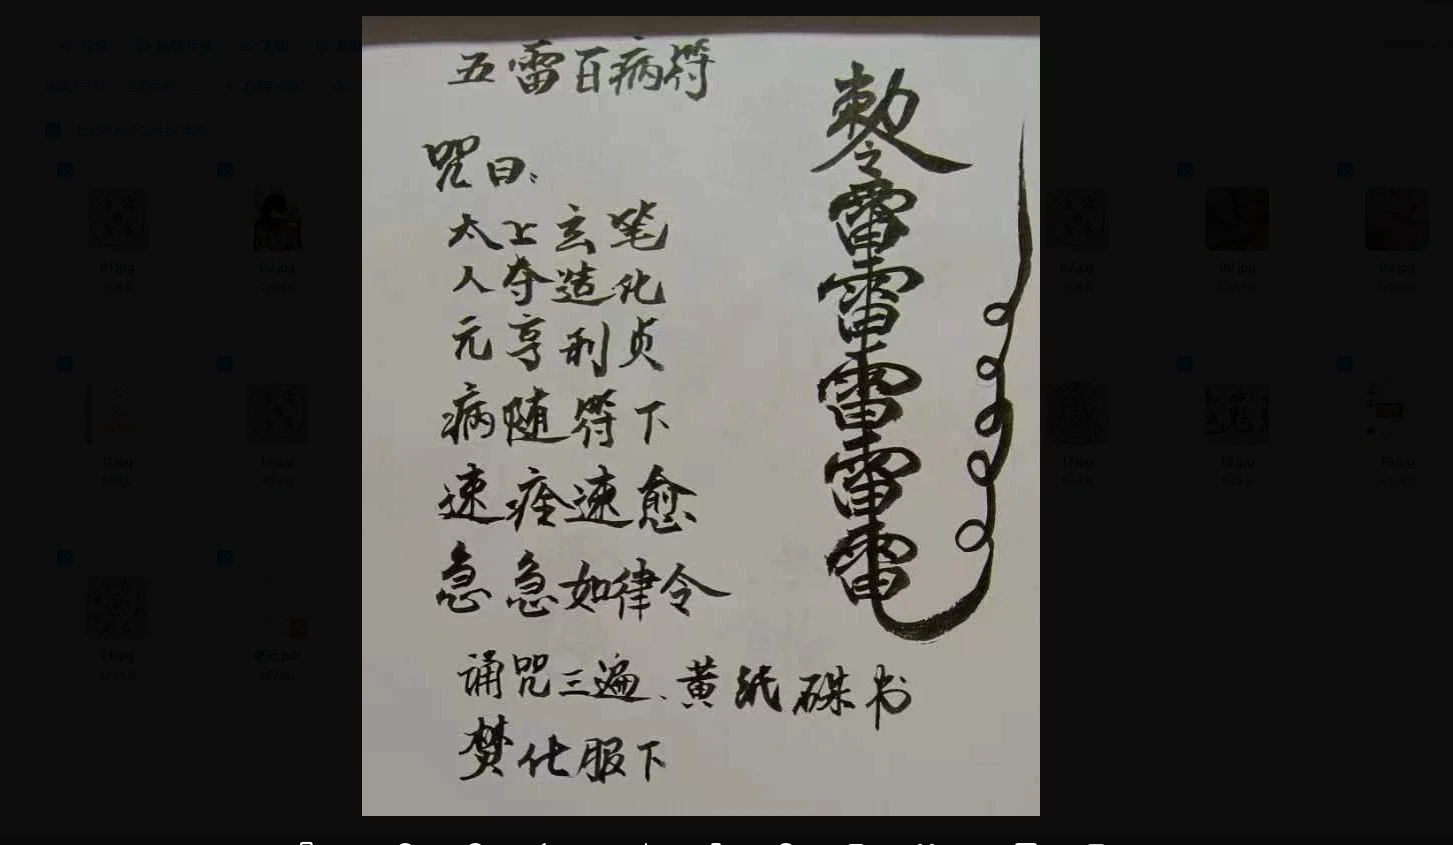 五雷百病符
咒曰：
太上玄笔
人夺造化
元亨利贞
病随符下
速痊速愈
急急如律令
诵咒三遍、黄纸硃书
焚化服下
敕令
雷
雷
雷
雷
雷
01.jpg
02.jpg
07.jpg
08.jpg
09.jpg
11.jpg
12.jpg
17.jpg
18.jpg
19.jpg
21.jpg
笔记.pdf